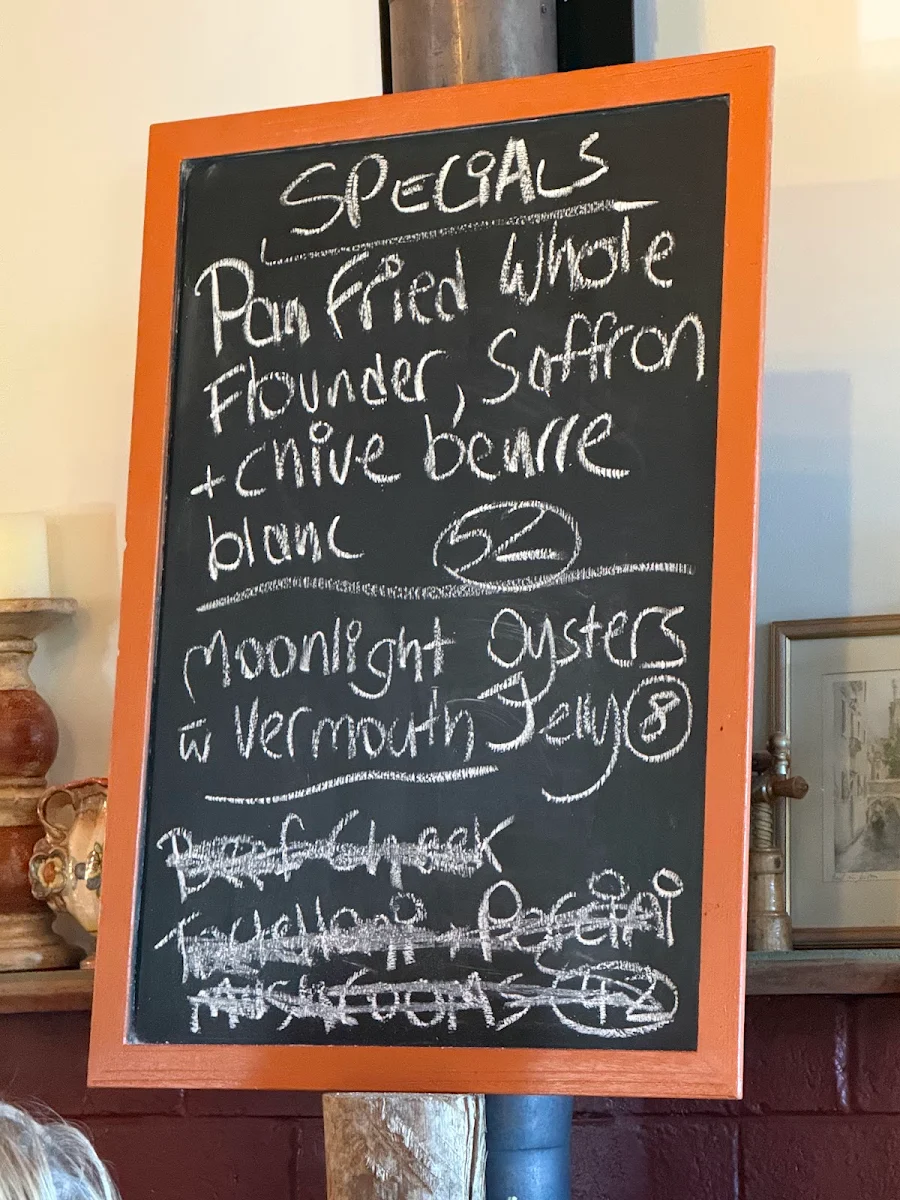 SPECiALS
Pan Fried Whole
Flounder, Saffron
+ chive beurre
blanc 52
Moonlight Oysters
w̄ Vermouth Jelly 8
Beef Cheek
Tortelloni + Porcini
mushrooms 42